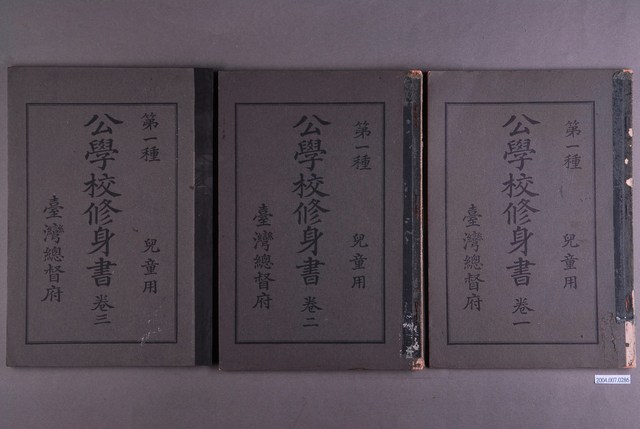 第一種 兒童用
公學校修身書 卷一
臺灣總督府
第一種 兒童用
公學校修身書 卷二
臺灣總督府
第一種 兒童用
公學校修身書 卷三
臺灣總督府
2004.007.0286